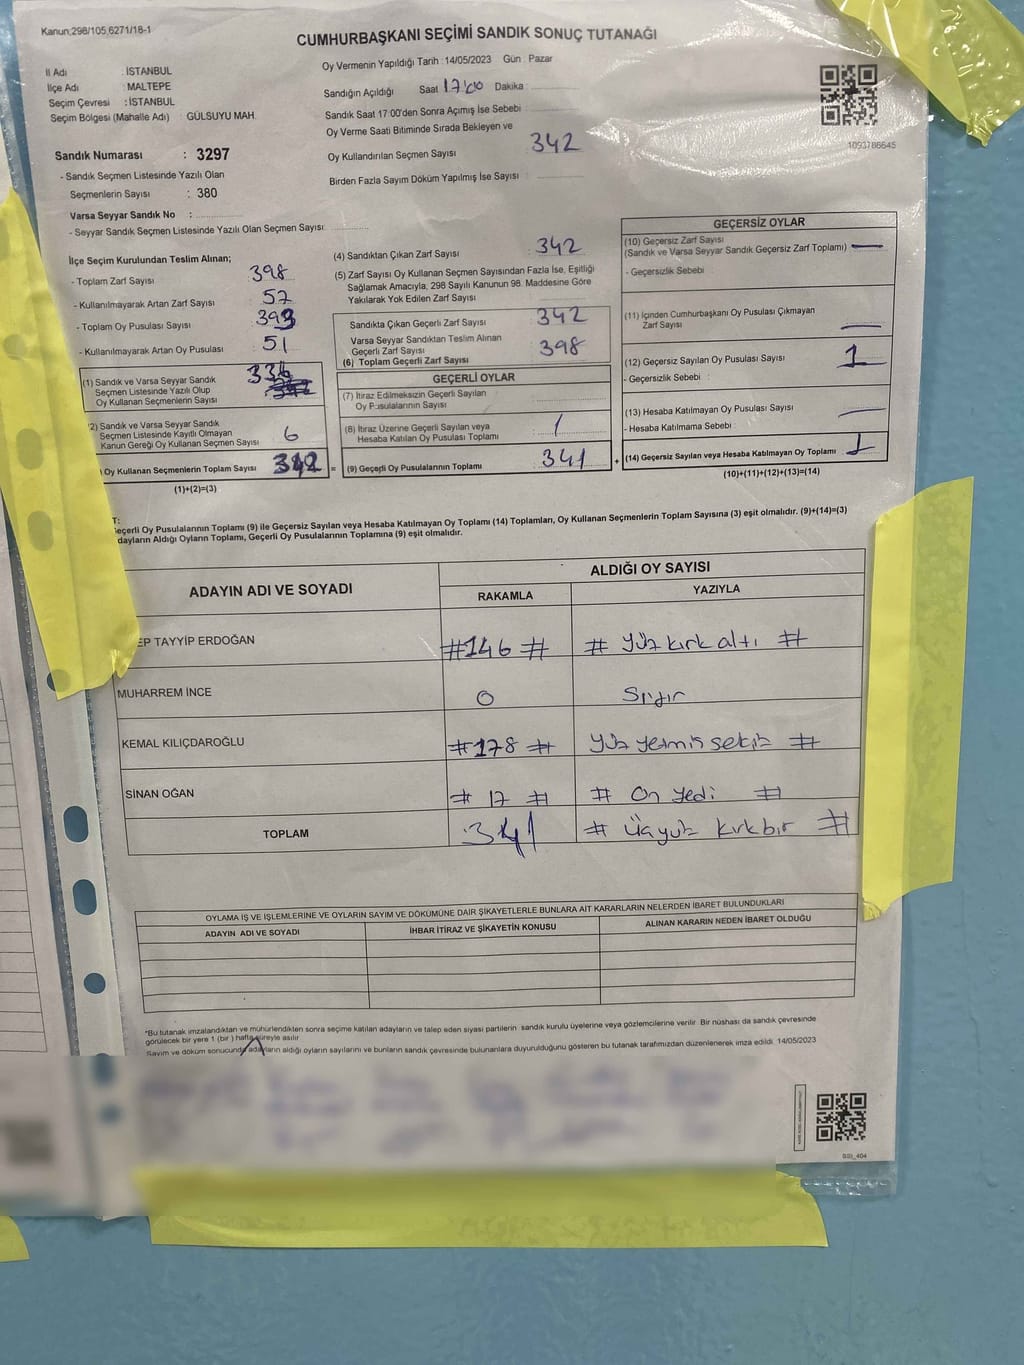 Kanun;298/105,6271/18-1
CUMHURBAŞKANI SEÇİMİ SANDIK SONUÇ TUTANAĞI
İl Adı : İSTANBUL
İlçe Adı : MALTEPE
Seçim Çevresi : İSTANBUL
Seçim Bölgesi (Mahalle Adı) : GÜLSUYU MAH.
Sandık Numarası : 3297
- Sandık Seçmen Listesinde Yazılı Olan
Seçmenlerin Sayısı : 380
Varsa Seyyar Sandık No :
- Seyyar Sandık Seçmen Listesinde Yazılı Olan Seçmen Sayısı:
Oy Vermenin Yapıldığı Tarih : 14/05/2023 Gün : Pazar
Sandığın Açıldığı Saat 17:00 Dakika
Sandık Saat 17:00'den Sonra Açılmış İse Sebebi :
Oy Verme Saati Bitiminde Sırada Bekleyen ve
Oy Kullandırılan Seçmen Sayısı : 342
Birden Fazla Sayım Döküm Yapılmış İse Sayısı :
1093786645
İlçe Seçim Kurulundan Teslim Alınan;
- Toplam Zarf Sayısı : 398
- Kullanılmayarak Artan Zarf Sayısı : 57
- Toplam Oy Pusulası Sayısı : 393
- Kullanılmayarak Artan Oy Pusulası : 51
(1) Sandık ve Varsa Seyyar Sandık
Seçmen Listesinde Yazılı Olup
Oy Kullanan Seçmenlerin Sayısı : 336
2) Sandık ve Varsa Seyyar Sandık
Seçmen Listesinde Kayıtlı Olmayan
Kanun Gereği Oy Kullanan Seçmen Sayısı : 6
) Oy Kullanan Seçmenlerin Toplam Sayısı : 342 =
(1)+(2)=(3)
(4) Sandıktan Çıkan Zarf Sayısı : 342
(5) Zarf Sayısı Oy Kullanan Seçmen Sayısından Fazla İse, Eşitliği
Sağlamak Amacıyla, 298 Sayılı Kanunun 98. Maddesine Göre
Yakılarak Yok Edilen Zarf Sayısı :
Sandıkta Çıkan Geçerli Zarf Sayısı : 342
Varsa Seyyar Sandıktan Teslim Alınan
Geçerli Zarf Sayısı : 398
(6) Toplam Geçerli Zarf Sayısı
GEÇERLİ OYLAR
(7) İtiraz Edilmeksizin Geçerli Sayılan
Oy Pusulalarının Sayısı :
(8) İtiraz Üzerine Geçerli Sayılan veya
Hesaba Katılan Oy Pusulası Toplamı : /
(9) Geçerli Oy Pusulalarının Toplamı : 341 +
GEÇERSİZ OYLAR
(10) Geçersiz Zarf Sayısı
(Sandık ve Varsa Seyyar Sandık Geçersiz Zarf Toplamı) : —
- Geçersizlik Sebebi :
(11) İçinden Cumhurbaşkanı Oy Pusulası Çıkmayan
Zarf Sayısı : —
(12) Geçersiz Sayılan Oy Pusulası Sayısı : 1
- Geçersizlik Sebebi :
(13) Hesaba Katılmayan Oy Pusulası Sayısı : —
- Hesaba Katılmama Sebebi :
(14) Geçersiz Sayılan veya Hesaba Katılmayan Oy Toplamı : 1
(10)+(11)+(12)+(13)=(14)
T:
eçerli Oy Pusulalarının Toplamı (9) ile Geçersiz Sayılan veya Hesaba Katılmayan Oy Toplamı (14) Toplamları, Oy Kullanan Seçmenlerin Toplam Sayısına (3) eşit olmalıdır. (9)+(14)=(3)
dayların Aldığı Oyların Toplamı, Geçerli Oy Pusulalarının Toplamına (9) eşit olmalıdır.
ADAYIN ADI VE SOYADI
ALDIĞI OY SAYISI
RAKAMLA YAZIYLA
EP TAYYİP ERDOĞAN #146# # yüz kırk altı #
MUHARREM İNCE 0 Sıfır
KEMAL KILIÇDAROĞLU #178# yüz yetmiş sekiz #
SİNAN OĞAN # 17 # # On yedi #
TOPLAM 341 # Üçyüz kırk bir #
OYLAMA İŞ VE İŞLEMLERİNE VE OYLARIN SAYIM VE DÖKÜMÜNE DAİR ŞİKAYETLERLE BUNLARA AİT KARARLARIN NELERDEN İBARET BULUNDUKLARI
ADAYIN ADI VE SOYADI İHBAR İTİRAZ VE ŞİKAYETİN KONUSU ALINAN KARARIN NEDEN İBARET OLDUĞU
*Bu tutanak imzalandıktan ve mühürlendikten sonra seçime katılan adayların ve talep eden siyasi partilerin sandık kurulu üyelerine veya gözlemcilerine verilir. Bir nüshası da sandık çevresinde
görülecek bir yere 1 (bir) hafta süreyle asılır
Sayım ve döküm sonucunda adayların aldığı oyların sayılarını ve bunların sandık çevresinde bulunanlara duyurulduğunu gösteren bu tutanak tarafımızdan düzenlenerek imza edildi. 14/05/2023
SSI_404